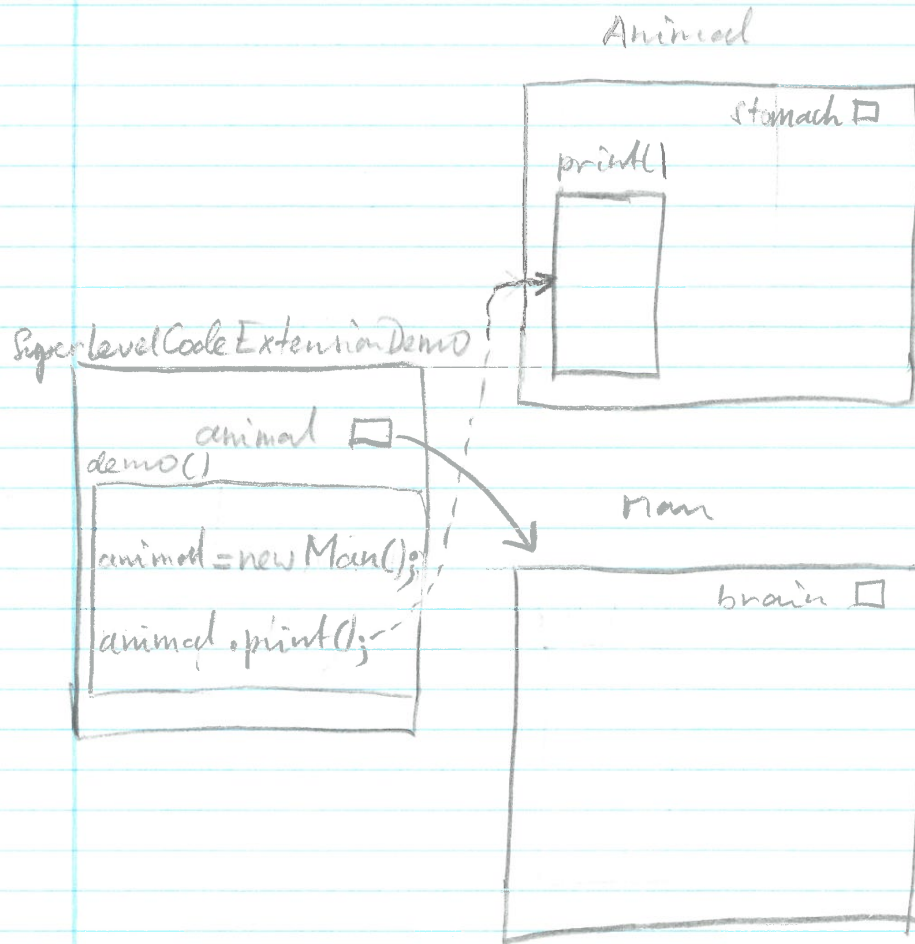 Animal
stomach
print()
SuperLevelCodeExtensionDemo
animal
demo()
animal = new Man();
animal.print();
Man
brain